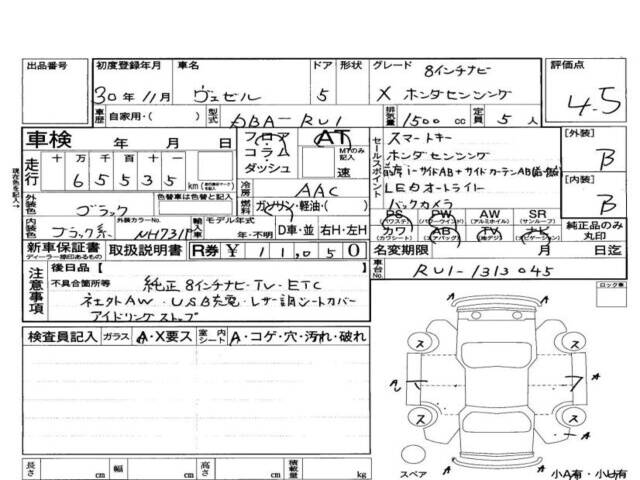 出品番号 初度登録年月 車名 ドア 形状 グレード 8インチナビ 評価点
30年11月 ヴェゼル 5 X ホンダセンシング 4.5
車歴 自家用・( ) 型式 DBA-RU1 排気量 1500cc 定員 5人
車検 年 月 日 フロア コラム ダッシュ AT MTのみ記入 速
走行 十 万 千 百 十 一
65535 km
冷房 AAC
燃料 ガソリン・軽油・( )
セールスポイント
スマートキー
ホンダセンシング
LEDオートライト
バックカメラ
[外装] B
[内装] B
現在色を記入→
外装色 ブラック 色替車は色替と記入
内装色 ブラック系 外装カラーNo. NH731P 輸入車 モデル年式 年・不明 D車・並 右H・左H
PS (パワステ) PW (パワーウインド) AW (アルミホイル) SR (サンルーフ)
カワ (カワシート) AB (エアバック) TV (純正・デジ) ナビ (ナビゲーション) 純正品のみ丸印
新車保証書 ディーラー様印あるもの 取扱説明書 R券 ¥11,050 名変期限 月 日迄
注意事項 後日品[ ] 車台No. RU1-1313045
不具合箇所等 純正8インチナビ・TV・ETC
社外AW・USB充電・レザー調シートカバー
アイドリングストップ
ロック車
検査員記入 ガラス A・X要ス 室内シート A・コゲ・穴・汚れ・破れ
ス ス
A A
ス ス
A A A
長さ cm 幅 cm 高さ cm 積載量 kg
スペア 小A有・小U有